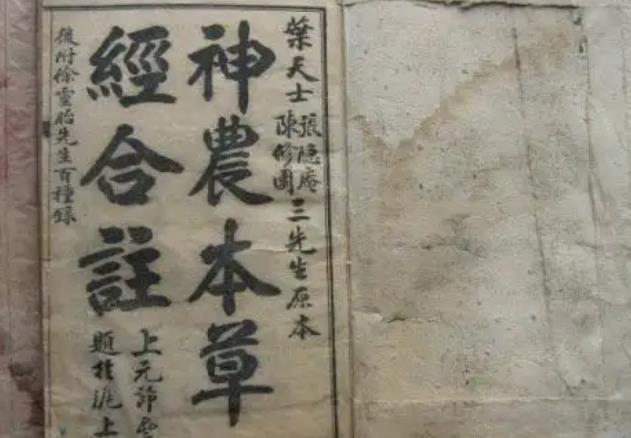 葉天士張隐庵陳修園三先生原本
神農本草
經合註
上元
題於滬上
後附徐靈胎先生百種錄